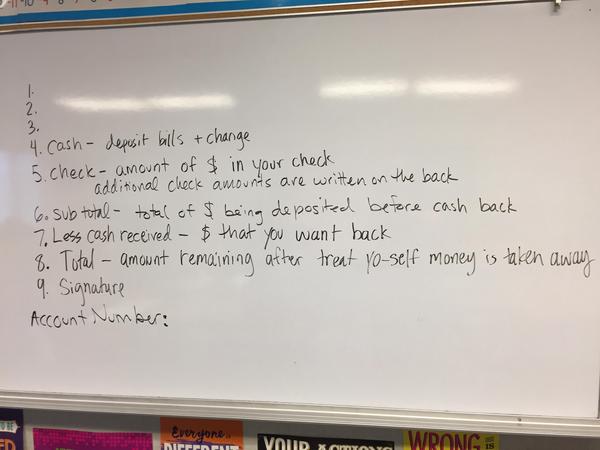 1.
2.
3.
4. Cash - deposit bills + change
5. Check - amount of $ in your check
additional check amounts are written on the back
6. Sub total - total of $ being deposited before cash back
7. Less cash received - $ that you want back
8. Total - amount remaining after treat yo-self money is taken away
9. Signature
Account Number:
Everyone is
DIFFERENT
YOUR ACTIONS
WRONG IS